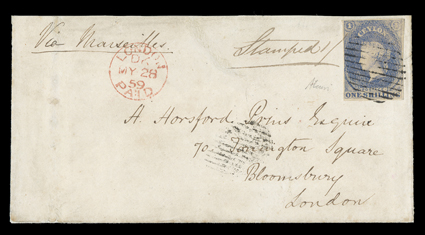 Via Marseilles.
Stamped/
CEYLON
ONE SHILLING
LONDON
MY 28
59
PAID
A. Horsford Prins Esquire
Square
Bloomsbury
London